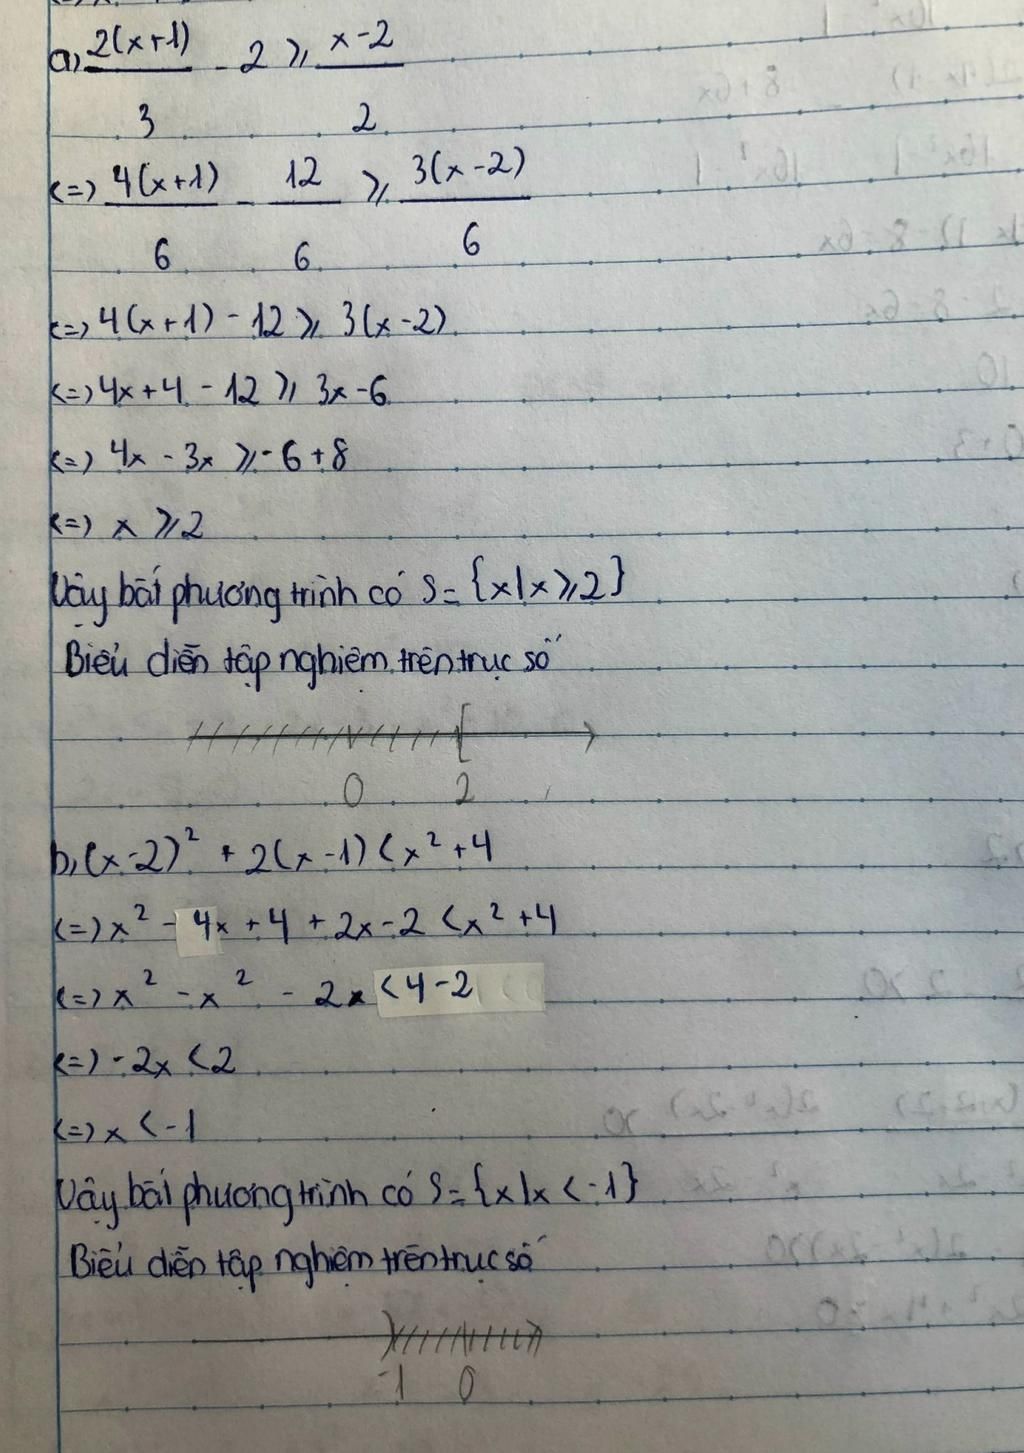 a, 2(x+1)/3 - 2 ⩾ x-2/2
<=> 4(x+1)/6 - 12/6 ⩾ 3(x-2)/6
<=> 4(x+1) - 12 ⩾ 3(x-2)
<=> 4x+4 - 12 ⩾ 3x-6
<=> 4x - 3x ⩾ -6+8
<=> x ⩾ 2
Vậy bất phương trình có S = {x|x⩾2}
Biểu diễn tập nghiệm trên trục số
0 2
b, (x-2)² + 2(x-1) < x²+4
<=> x² - 4x + 4 + 2x - 2 < x² + 4
<=> x² - x² - 2x < 4-2
<=> -2x < 2
<=> x < -1
Vậy bất phương trình có S = {x|x < -1}
Biểu diễn tập nghiệm trên trục số
-1 0